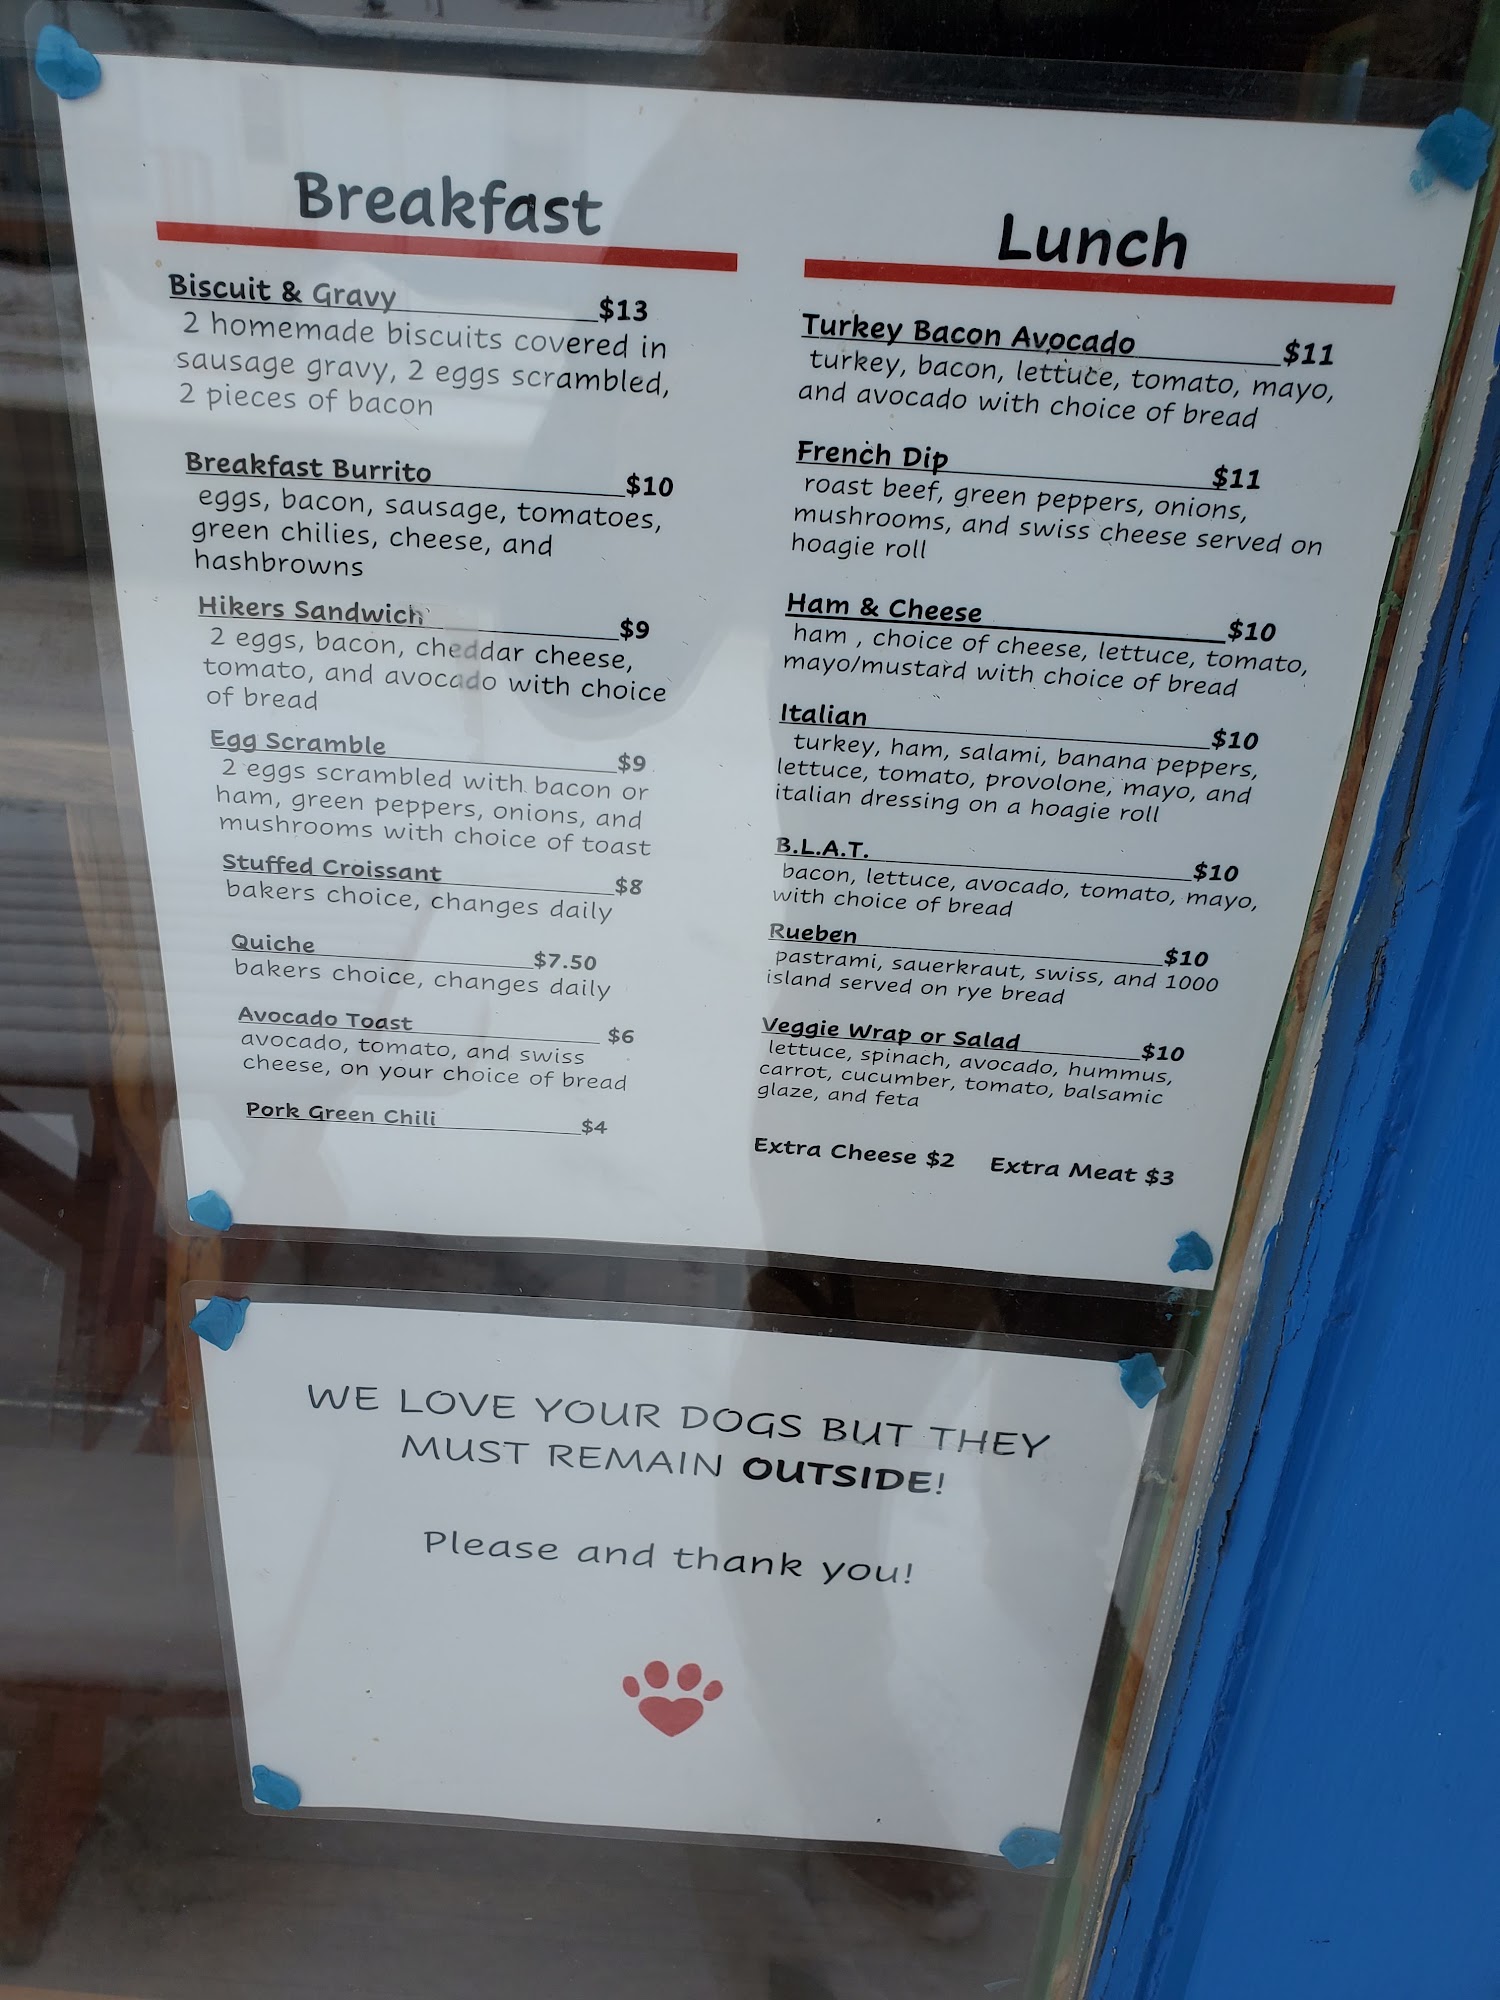 Breakfast
Biscuit & Gravy $13
2 homemade biscuits covered in
sausage gravy, 2 eggs scrambled,
2 pieces of bacon
Breakfast Burrito $10
eggs, bacon, sausage, tomatoes,
green chilies, cheese, and
hashbrowns
Hikers Sandwich $9
2 eggs, bacon, cheddar cheese,
tomato, and avocado with choice
of bread
Egg Scramble $9
2 eggs scrambled with bacon or
ham, green peppers, onions, and
mushrooms with choice of toast
Stuffed Croissant $8
bakers choice, changes daily
Quiche $7.50
bakers choice, changes daily
Avocado Toast $6
avocado, tomato, and swiss
cheese, on your choice of bread
Pork Green Chili $4
Lunch
Turkey Bacon Avocado $11
turkey, bacon, lettuce, tomato, mayo,
and avocado with choice of bread
French Dip $11
roast beef, green peppers, onions,
mushrooms, and swiss cheese served on
hoagie roll
Ham & Cheese $10
ham , choice of cheese, lettuce, tomato,
mayo/mustard with choice of bread
Italian $10
turkey, ham, salami, banana peppers,
lettuce, tomato, provolone, mayo, and
italian dressing on a hoagie roll
B.L.A.T. $10
bacon, lettuce, avocado, tomato, mayo,
with choice of bread
Rueben $10
pastrami, sauerkraut, swiss, and 1000
island served on rye bread
Veggie Wrap or Salad $10
lettuce, spinach, avocado, hummus,
carrot, cucumber, tomato, balsamic
glaze, and feta
Extra Cheese $2 Extra Meat $3
WE LOVE YOUR DOGS BUT THEY
MUST REMAIN OUTSIDE!
Please and thank you!